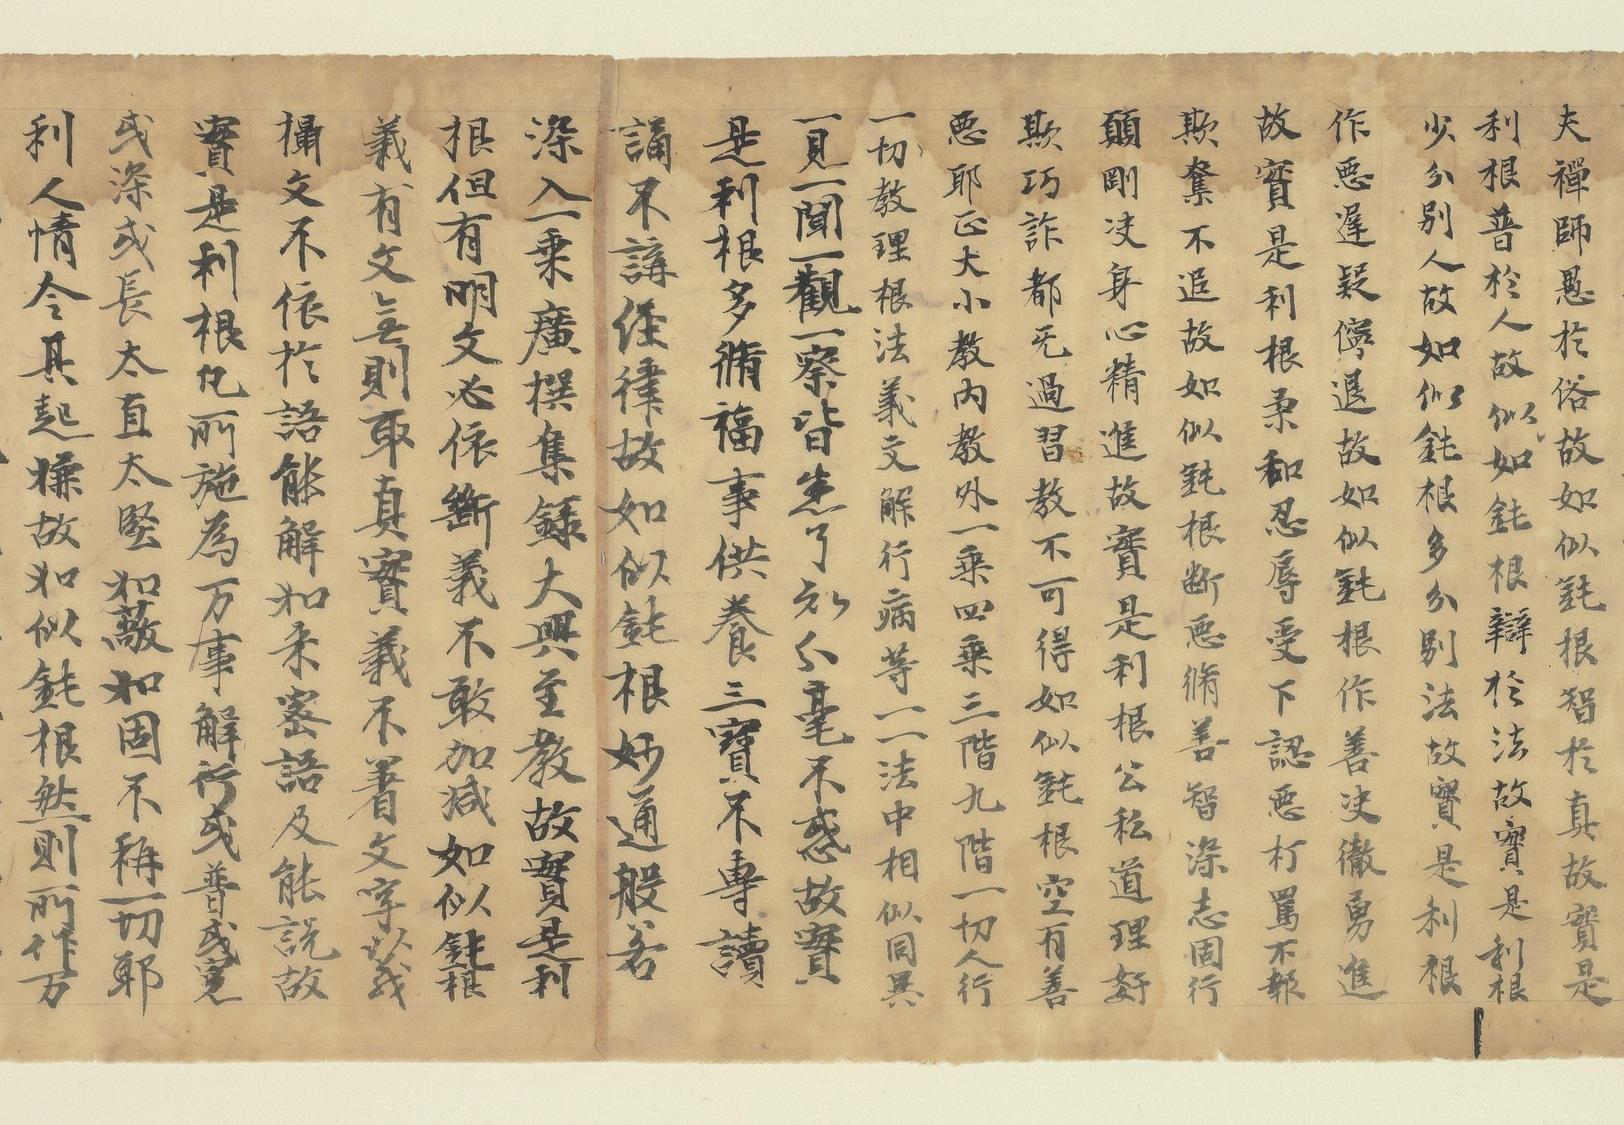 夫禪師愚於俗故如似鈍根智於真故實是
利根普於人故似如鈍根辯於法故實是利根
少分別人故如似鈍根多分別法故實是利根
作惡遲疑儜退故如似鈍根作善决徹勇進
故實是利根柔和忍辱受下認惡打罵不報
欺奪不追故如似鈍根断惡脩善智深志固行
願剛决身心精進故實是利根公私道理姧
欺巧詐都无過習教不可得如似鈍根空有善
惡耶正大小教内教外一乘四乘三階九階一切人行
一切教理根法義文解行病等一一法中相似同異
一見一聞一觀一察皆悉了知分毫不惑故實
是利根多脩福事供養三寶不專讀
誦不講經律故如似鈍根妙通般若
深入一乘廣撰集錄大興至教故實是利
根但有明文必依斷義不敢加減如似鈍根
義有文无則取真實義不著文字以義
攝文不依於語能解如来密語及能説故
實是利根凡所施為万事解行或普或寬
或深或長太直太堅如蔽如固不稱一切耶
利人情令其起嫌故如似鈍根然則所作万